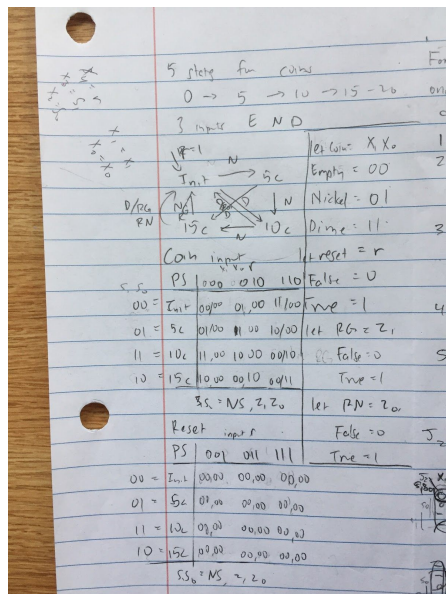 5 states for coins
0 → 5 → 10 → 15 - 20
3 inputs E N D
r=1
N
Init → 5c
D/RG
RN
N
15c ← 10c
N
let Coin = X, X₀
Empty = 00
Nickel = 01
Dime = 11
let reset = r
False = 0
True = 1
let RG = Z,
False = 0
True = 1
let RN = Z₀,
False = 0
True = 1
Coin input
S, S₀ PS 000 010 110
00 = Init 00/00 01,00 11/00
01 = 5c 01/00 11 00 10/00
11 = 10c 11,00 10 00 00/10
10 = 15c 10,00 00,10 00/11
S,S₀ = NS, Z, Z₀
Reset input r
PS 001 011 111
00 = Init 00,00 00,00 00,00
01 = 5c 00,00 00,00 00,00
11 = 10c 00,00 00,00 00,00
10 = 15c 00,00 00,00 00,00
S,S₀ = NS, Z, Z₀
For
1
2
3
4
5